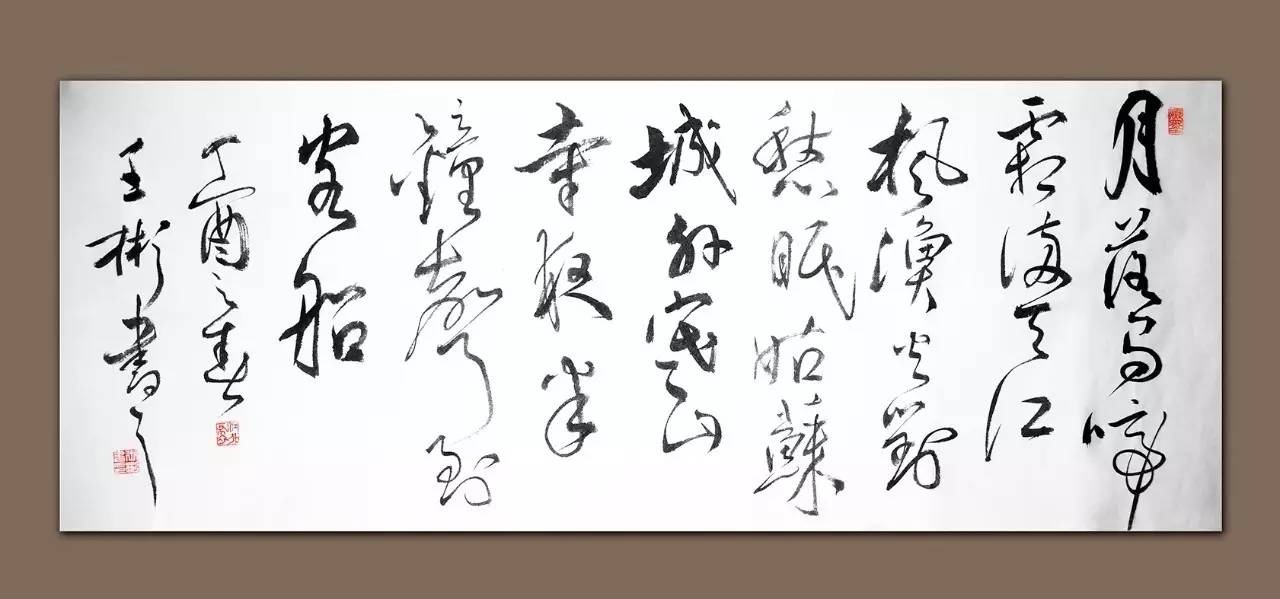 月落烏啼
霜滿天江
楓漁火對
愁眠姑蘇
城外寒山
寺夜半
鐘聲到
客船
丁酉之
王彬書